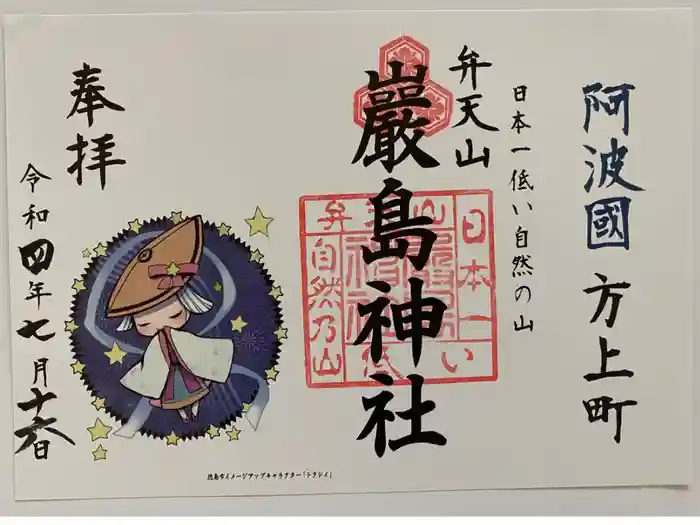 阿波國 方上町
日本一低い自然の山
弁天山
巖島神社
日本一
い
低
弁
山
自然乃山
奉拝
令和四年七月十六日
徳島市イメージアップキャラクター「トクシイ」